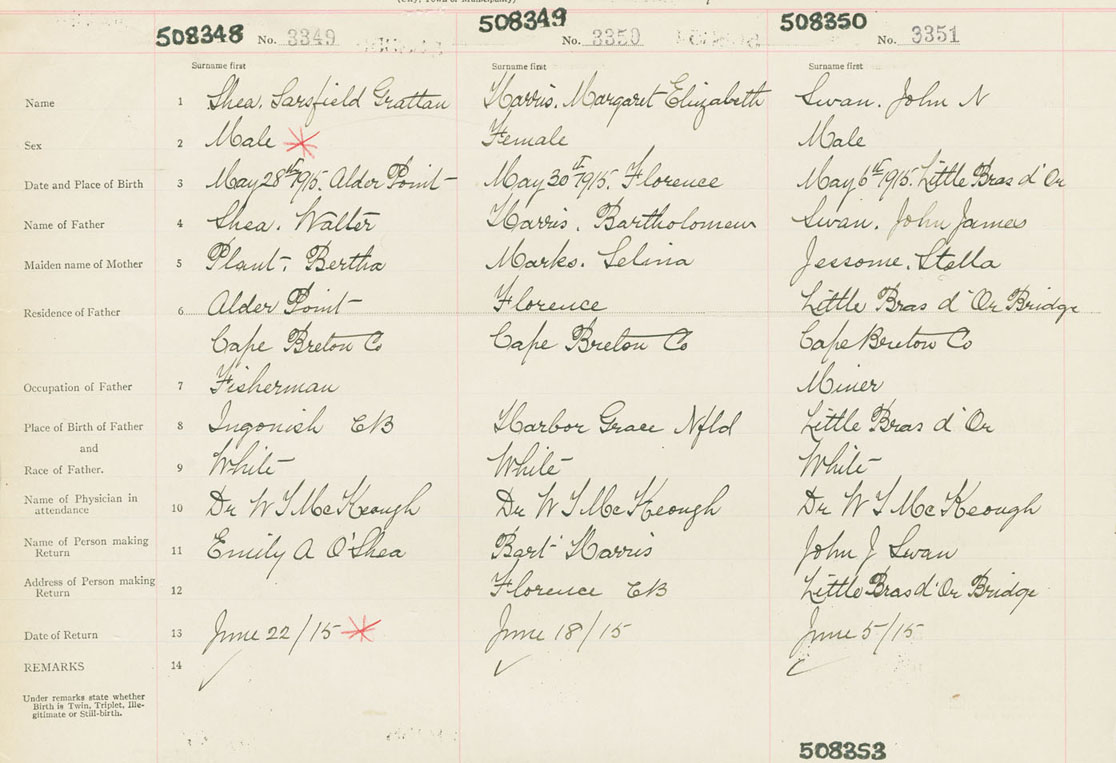 508348 No. 3349 508349 No. 3350 508350 No. 3351
Surname first Surname first Surname first
Name 1 Shea. Sarsfield Grattan Harris. Margaret Elizabeth Swan. John N
Sex 2 Male Female Male
Date and Place of Birth 3 May 28th 1915. Alder Point May 30th 1915. Florence May 6th 1915. Little Bras d'Or
Name of Father 4 Shea. Walter Harris. Bartholomew Swan. John James
Maiden name of Mother 5 Plant. Bertha Marks. Selina Jessome. Stella
Residence of Father 6 Alder Point Florence Little Bras d'Or Bridge
Cape Breton Co Cape Breton Co Cape Breton Co
Occupation of Father 7 Fisherman Miner
Place of Birth of Father 8 Ingonish CB Harbor Grace Nfld Little Bras d'Or
and
Race of Father. 9 White White White
Name of Physician in
attendance 10 Dr W S McKeough Dr W S McKeough Dr W S McKeough
Name of Person making
Return 11 Emily A O'Shea Bart Harris John J Swan
Address of Person making
Return 12 Florence CB Little Bras d'Or Bridge
Date of Return 13 June 22/15 June 18/15 June 5/15
REMARKS 14
Under remarks state whether
Birth is Twin, Triplet, Ille-
gitimate or Still-birth.
508353